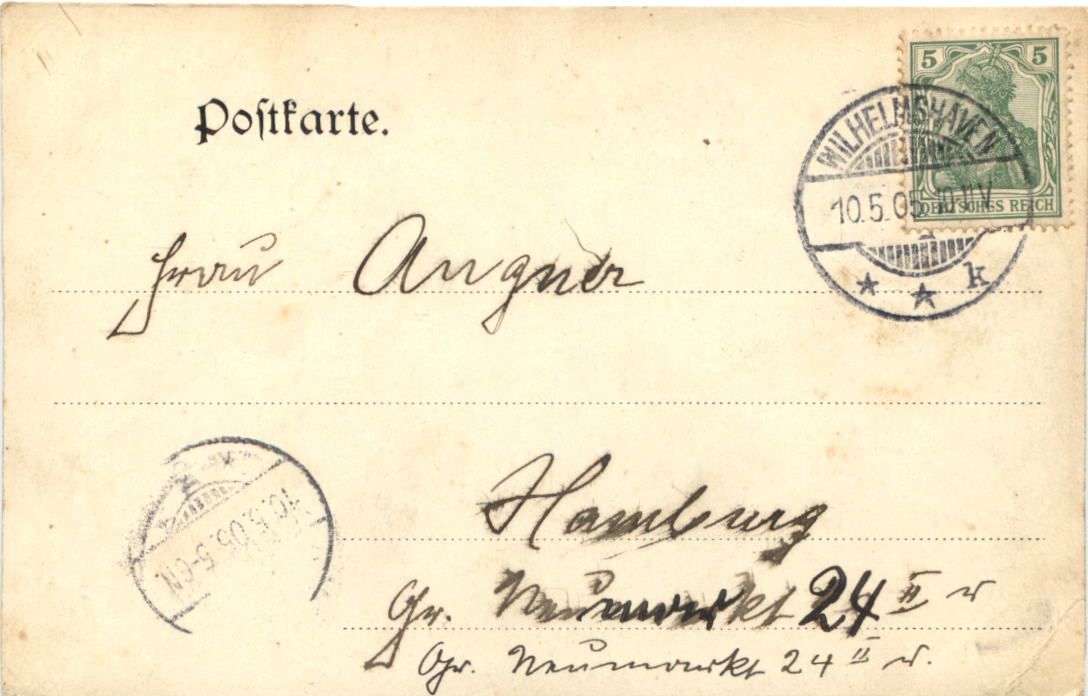 Postkarte.
5 5
DEUTSCHES REICH
WILHELMSHAVEN
10.5.05 10-11V
* * k
Frau Angner
10.5.05. 5-6N.
Hamburg
Gr. Neumarkt 24 II r
Gr. Neumarkt 24 II r.